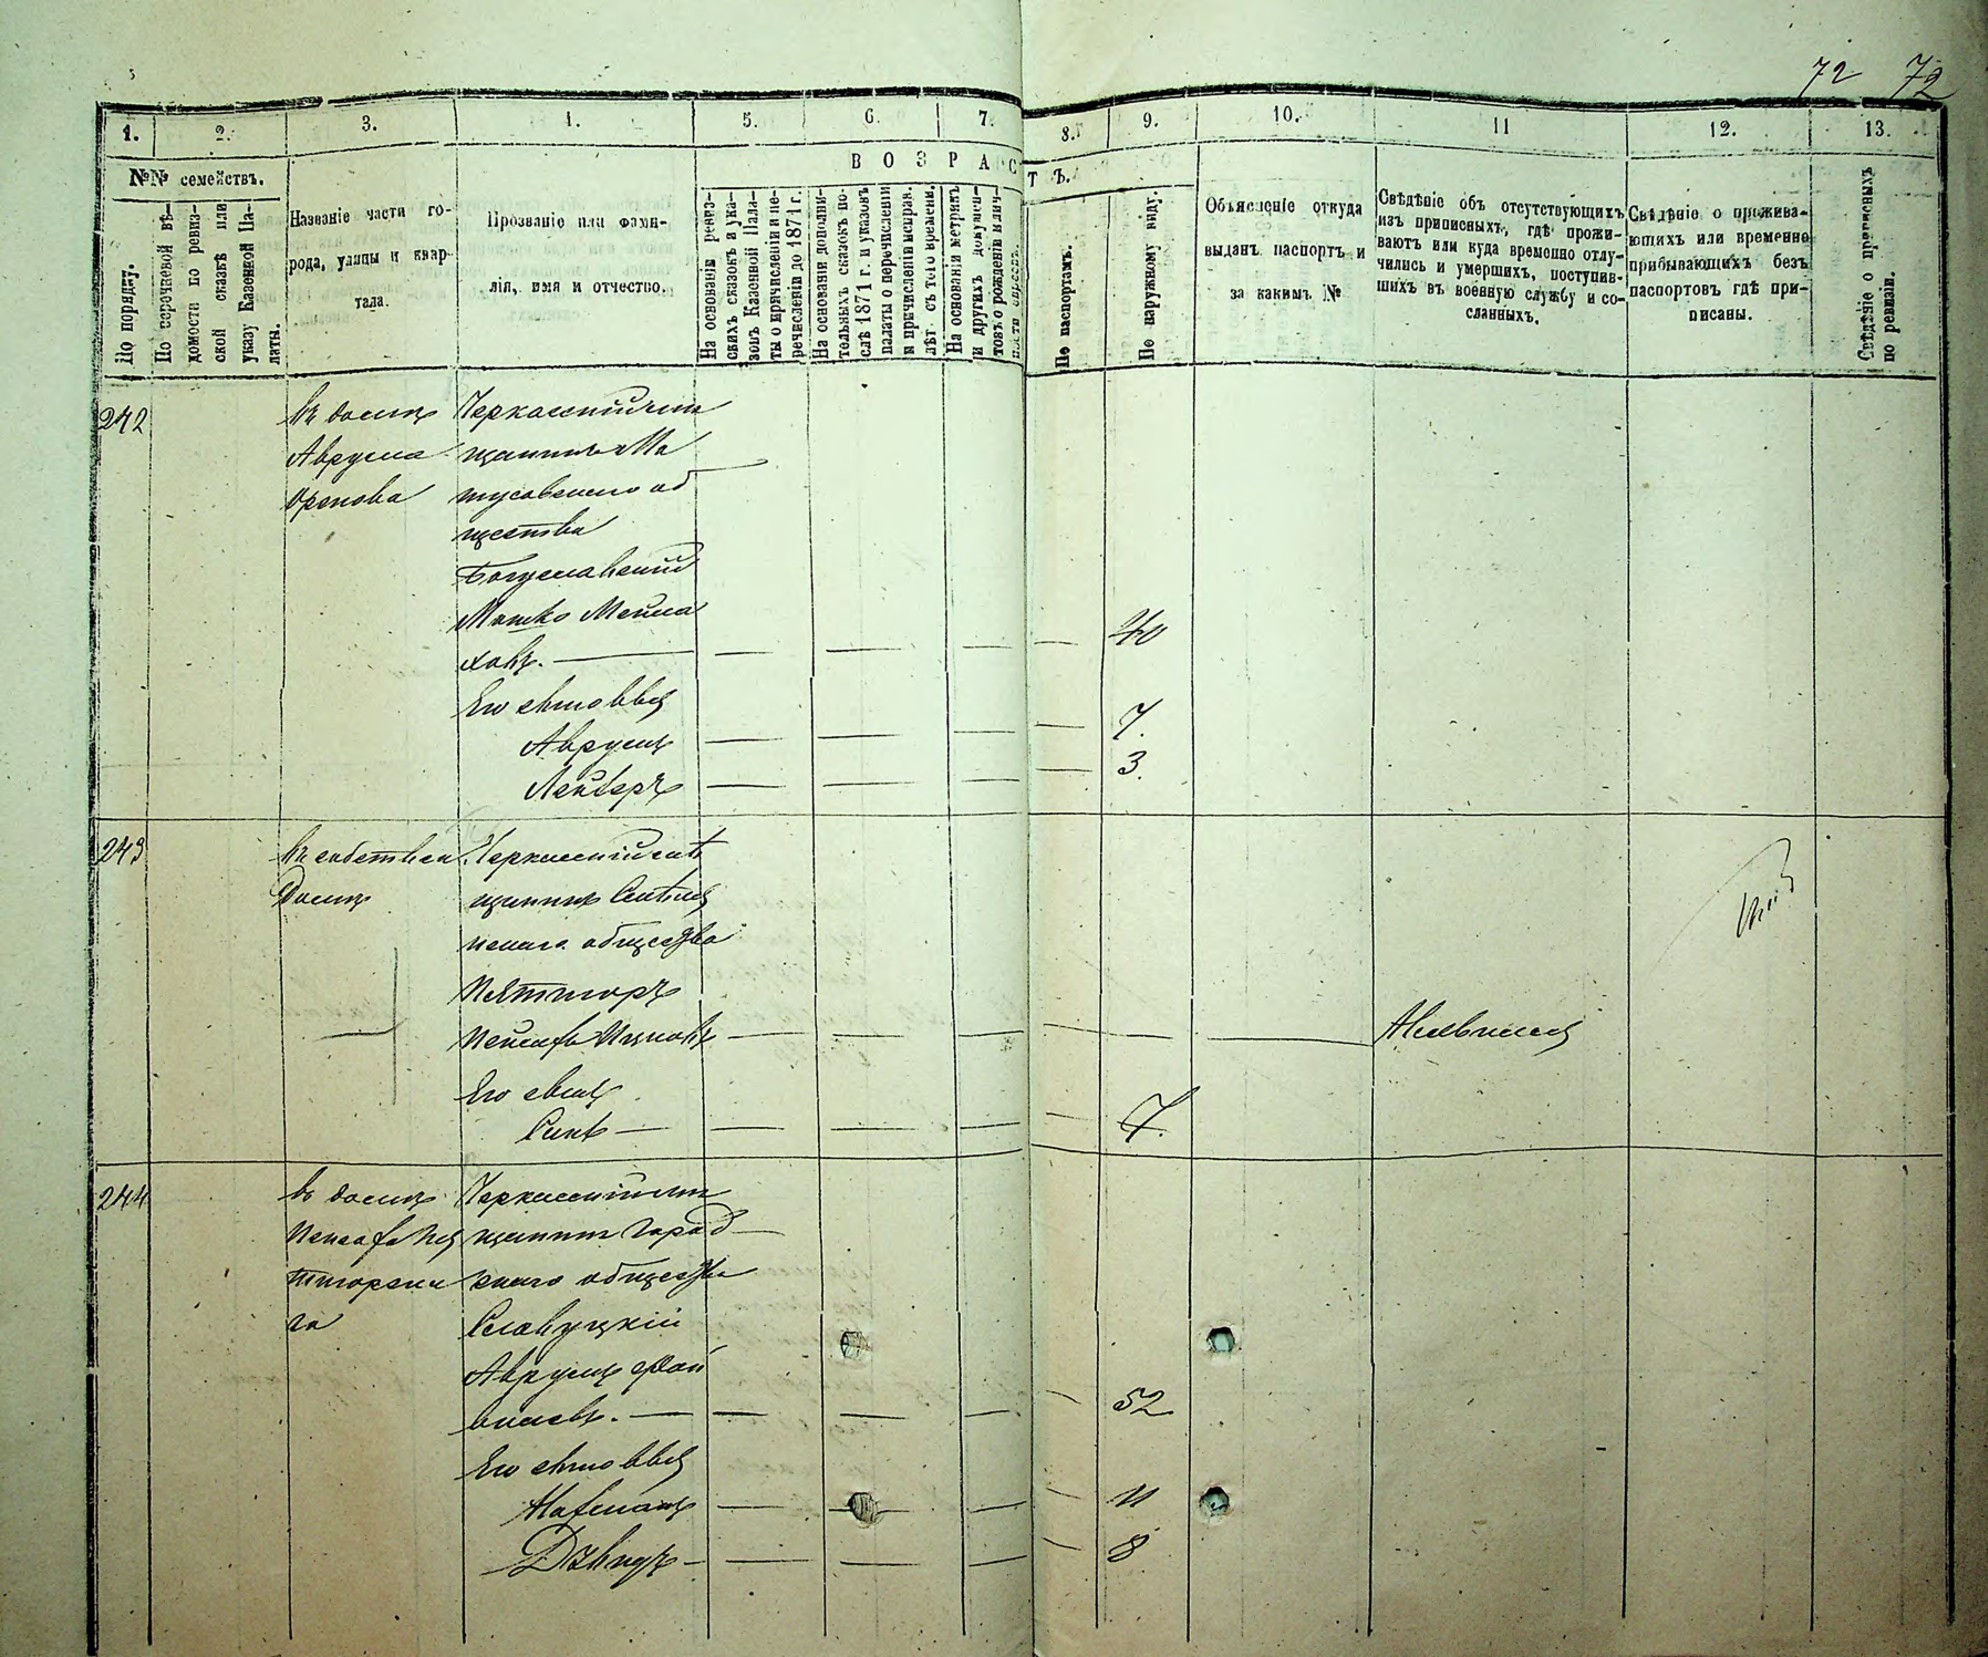 72 72
1. 2. 3. 4. 5. 6. 7. 8. 9. 10. 11 12. 13.
ВОЗРАСТЪ.
№№ семействъ.
По порядку.
По перечневой вѣ-
домости по ревиз-
ской сказкѣ или
указу Казенной Па-
латы.
Названіе части го-
рода, улицы и квар-
тала.
Прозваніе или фами-
лія, имя и отчество.
На основаніи ревиз-
скихъ сказокъ и ука-
зовъ Казенной Пала-
ты о причисленіи и пе-
речисленіи до 1871 г.
На основаніи дополни-
тельныхъ сказокъ по-
слѣ 1871 г. и указовъ
палаты о перечисленіи
и причисленіи исправ.
лѣт. съ того времени.
На основаніи метрикъ
и другихъ докумен-
товъ о рожденіи
По паспортамъ.
По наружному виду.
Объясненіе откуда
выданъ паспортъ и
за какимъ №
Свѣдѣніе объ отсутствующихъ
изъ приписныхъ, гдѣ прожи-
ваютъ или куда временно отлу-
чились и умершихъ, поступив-
шихъ въ военную службу и со-
сланныхъ.
Свѣдѣніе о прожива-
ющихъ или временно
прибывающихъ безъ
паспортовъ гдѣ при-
писаны.
Свѣдѣніе о приписныхъ
по ревизіи.
242 въ домѣ Черкасскій мѣ
Аврума щанинъ Ма
Орлова тусовскаго об
щества
Богуславскій
Мошко Мейла
ховъ. — 40
Его сыновья
Аврумъ — 7.
Лейзеръ — 3.
243 въ собствен. Черкасскій мѣ
домѣ щанинъ
скаго общества
Пятигоръ
Ицковъ —
Его сынъ
— 7.
244 въ домѣ Черкасскій мѣ
щанинъ Город
тигорска скаго общества
го Славуцкій
Аврумъ Фай
вишевъ. — 52
Его сыновья
— 11
Давидъ — 8